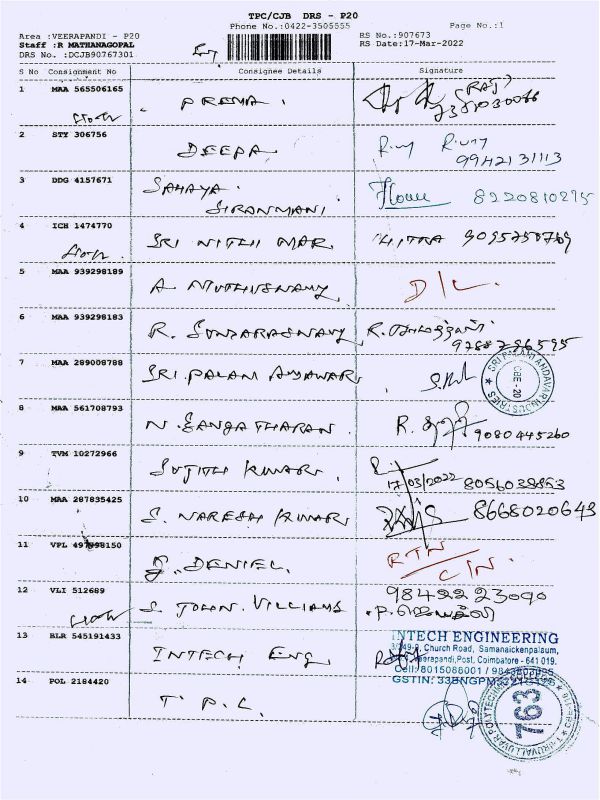 TPC/CJB DRS - P20
Phone No.:0422-3505555 Page No.:1
Area :VEERAPANDI - P20 RS No.:907673
Staff :R MATHANAGOPAL RS Date:17-Mar-2022
DRS No. :DCJB90767301
S No Consignment No Consignee Details Signature
1 MAA 565506165 PREMA. (RAJ)
2 STY 306756 DEEPA
9942131113
3 DDG 4157671 SAHAYA
SIRONMANI 8220810275
4 ICH 1474770 SRI NITHI MAR
5 MAA 939298189 A MUTHUSWAMY D/L
6 MAA 939298183 R.
9788796595
7 MAA 289008788 SRI.PALANI
SRI PALANI ANDAVAR INDUSTRIES CBE-20
8 MAA 561708793 N. GANGATHARAN 9080445260
9 TVM 10272966 SUJITH KUMAR
17/03/2022 8056038853
10 MAA 287835425 S. NARESH KUMAR 8668020643
11 VPL J. DENIEL. RTN
C/N.
12 VLI 512689 S. JOHN. VILLIAMS 9842223090
13 BLR 545191433 INTECH ENG
INTECH ENGINEERING
Church Road, Samanaickenpalayam,
Veerapandi,Post, Coimbatore - 641 019.
Cell: 8015088001
GSTIN:
14 POL 2184420 T.P.C.
763